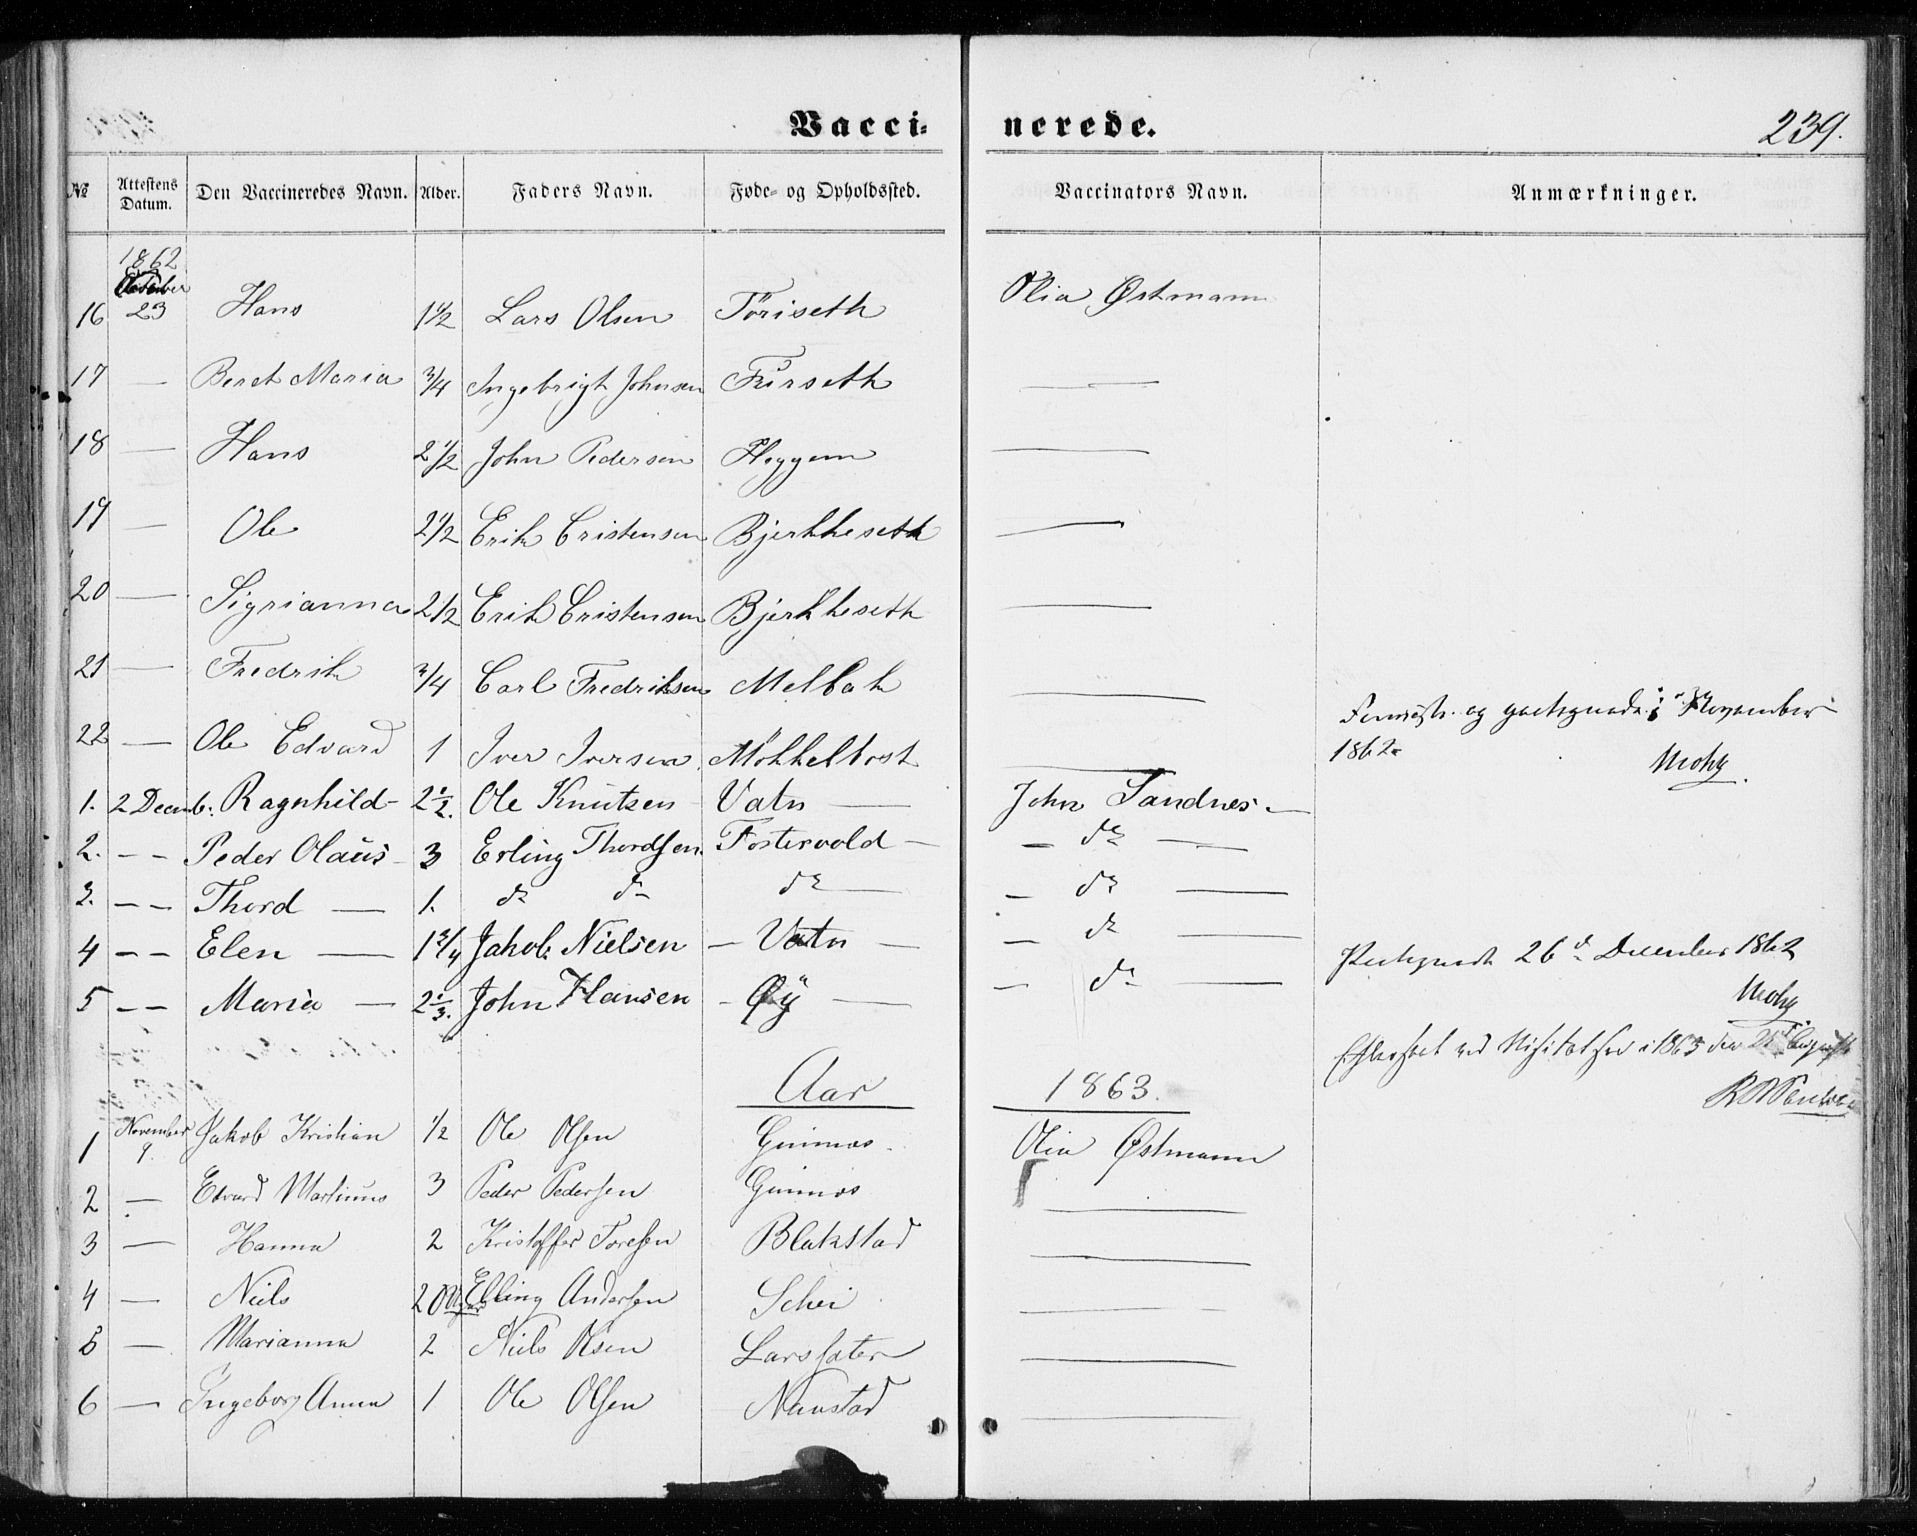 Vaccinerede.
239.
№ Attestens Datum. Den Vaccineredes Navn. Alder. Faders Navn. Føde- og Opholdssted. Vaccinators Navn. Anmærkninger.
1862
16 23 Hans 1 1/2 Lars Olsen Töriseth Olia Østmann
17 — Beret Maria 3/4 Ingebrigt Johnsen Fürseth —
18 — Hans 2 1/2 John Pedersen Heggem —
19 — Ole 2 1/2 Erik Cristensen Bjerkheseth —
20 — Sigrianna 2 1/2 Erik Cristensen Bjerkheseth —
21 — Fredrik 3/4 Carl Fredriksen Melbak —
22 — Ole Edvard 1 Iver Iversen Mökkeltost — og November
1862
1. 2 Decemb: Ragnhild 2 1/2. Ole Knutsen Vatn — John Sandnes —
2. – – Peder Olaüs 3 Erling Thordsen. Fostervold — — do —
3. – – Thord — 1. do do do — — do —
4 – – Elen — 1 3/4 Jakob Nielsen — Vatn — — do —
5 – – Maria — 2 1/3. John Hansen – Øÿ — — do —
26d December 1862
1863 den August
Aar 1863.
1 November 9. Jakob Kristian 1/2 Ole Olsen Guinmos. Olia Østmann
2 — Edvard Martinus 3 Peder Pedersen Guinmos —
3 — Hanna 2 Kristoffer Toresen Blakstad —
4 — Niels 20 Uger Elling Andersen Schei —
5 — Marianna 2 Niels Olsen Larssæter —
6 — Ingeborg Anna 1 Ole Olsen Naustad —